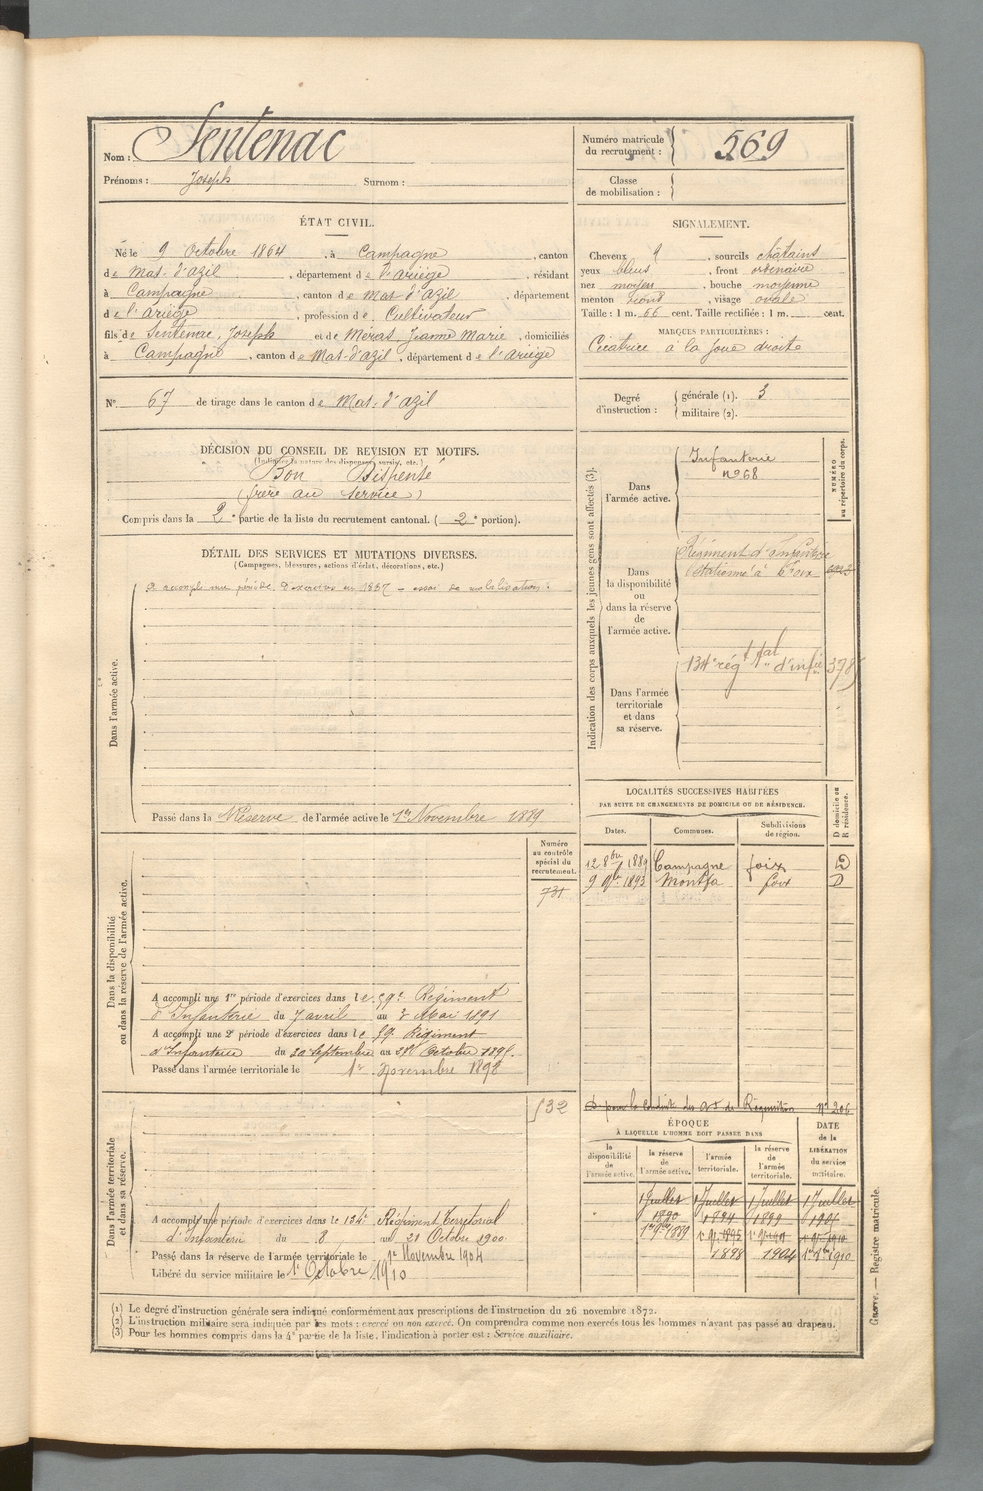 Nom : Sentenac
Prénoms : Joseph Surnom :
Numéro matricule du recrutement : 569
Classe de mobilisation :
ÉTAT CIVIL.
Né le 9 Octobre 1864, à Campagne, canton
de Mas-d'azil, département de l'ariège, résidant
à Campagne, canton de Mas-d'azil, département
de l'ariège, profession de Cultivateur
fils de Sentenac, Joseph et de Méras, Jeanne Marie, domiciliés
à Campagne, canton de Mas-d'azil, département de l'ariège
SIGNALEMENT.
Cheveux , sourcils châtains
yeux bleus, front ordinaire
nez moyen, bouche moyenne
menton rond, visage ovale
Taille : 1 m. 66 cent. Taille rectifiée : 1 m. cent.
MARQUES PARTICULIÈRES :
Cicatrice à la joue droite
N° 67 de tirage dans le canton de Mas-d'azil
Degré d'instruction : générale (1). 3
militaire (2).
DÉCISION DU CONSEIL DE REVISION ET MOTIFS.
(Indiquer la nature des dispenses, sursis, etc.)
Bon Dispensé
(frère au service)
Compris dans la 2e partie de la liste du recrutement cantonal. (2e portion).
DÉTAIL DES SERVICES ET MUTATIONS DIVERSES.
(Campagnes, blessures, actions d'éclat, décorations, etc.)
Dans l'armée active.
a accompli une période d'exercices en 1887 - essai de mobilisation
Passé dans la Réserve de l'armée active le 1er Novembre 1889
Indication des corps auxquels les jeunes gens sont affectés (3).
NUMÉRO au répertoire du corps.
Dans l'armée active.
Infanterie
n° 68
Dans la disponibilité ou dans la réserve de l'armée active.
Régiment d'infanterie
stationné à Foix
Dans l'armée territoriale et dans sa réserve.
134e régt tal d'infie 3785
LOCALITÉS SUCCESSIVES HABITÉES
PAR SUITE DE CHANGEMENTS DE DOMICILE OU DE RÉSIDENCE.
Dates. Communes. Subdivisions de région. D domicile ou R résidence.
12 8bre 1889 Campagne foix D
9 9bre 1893 Montfa foix D
Numéro au contrôle spécial du recrutement.
731
Dans la disponibilité ou dans la réserve de l'armée active.
A accompli une 1re période d'exercices dans le 59e Régiment
d'Infanterie du 7 avril au 4 Mai 1891
A accompli une 2e période d'exercices dans le 59e Régiment
d'Infanterie du 30 Septembre au Octobre 1895.
Passé dans l'armée territoriale le 1er Novembre 1898
532
Dans l'armée territoriale et dans sa réserve.
A accompli une période d'exercices dans le 134e Régiment Territorial
d'Infanterie du 8 au 21 Octobre 1900.
Passé dans la réserve de l'armée territoriale le 1er Novembre 1904
Libéré du service militaire le 1er Octobre 1910
pour la Conduite des de Réquisition n° 206
ÉPOQUE
À LAQUELLE L'HOMME DOIT PASSER DANS
DATE de la LIBÉRATION du service militaire.
la disponibilité de l'armée active. la réserve de l'armée active. l'armée territoriale. la réserve de l'armée territoriale.
1 Juillet 1890 1 Juillet 1894 1 Juillet 1899 1 Juillet 1906
1er 9bre 1889
1898 1904 1910
(1) Le degré d'instruction générale sera indiqué conformément aux prescriptions de l'instruction du 26 novembre 1872.
(2) L'instruction militaire sera indiquée par les mots : exercé ou non exercé. On comprendra comme non exercés tous les hommes n'ayant pas passé au drapeau.
(3) Pour les hommes compris dans la 4e partie de la liste, l'indication à porter est : Service auxiliaire.
Guerre. — Registre matricule.